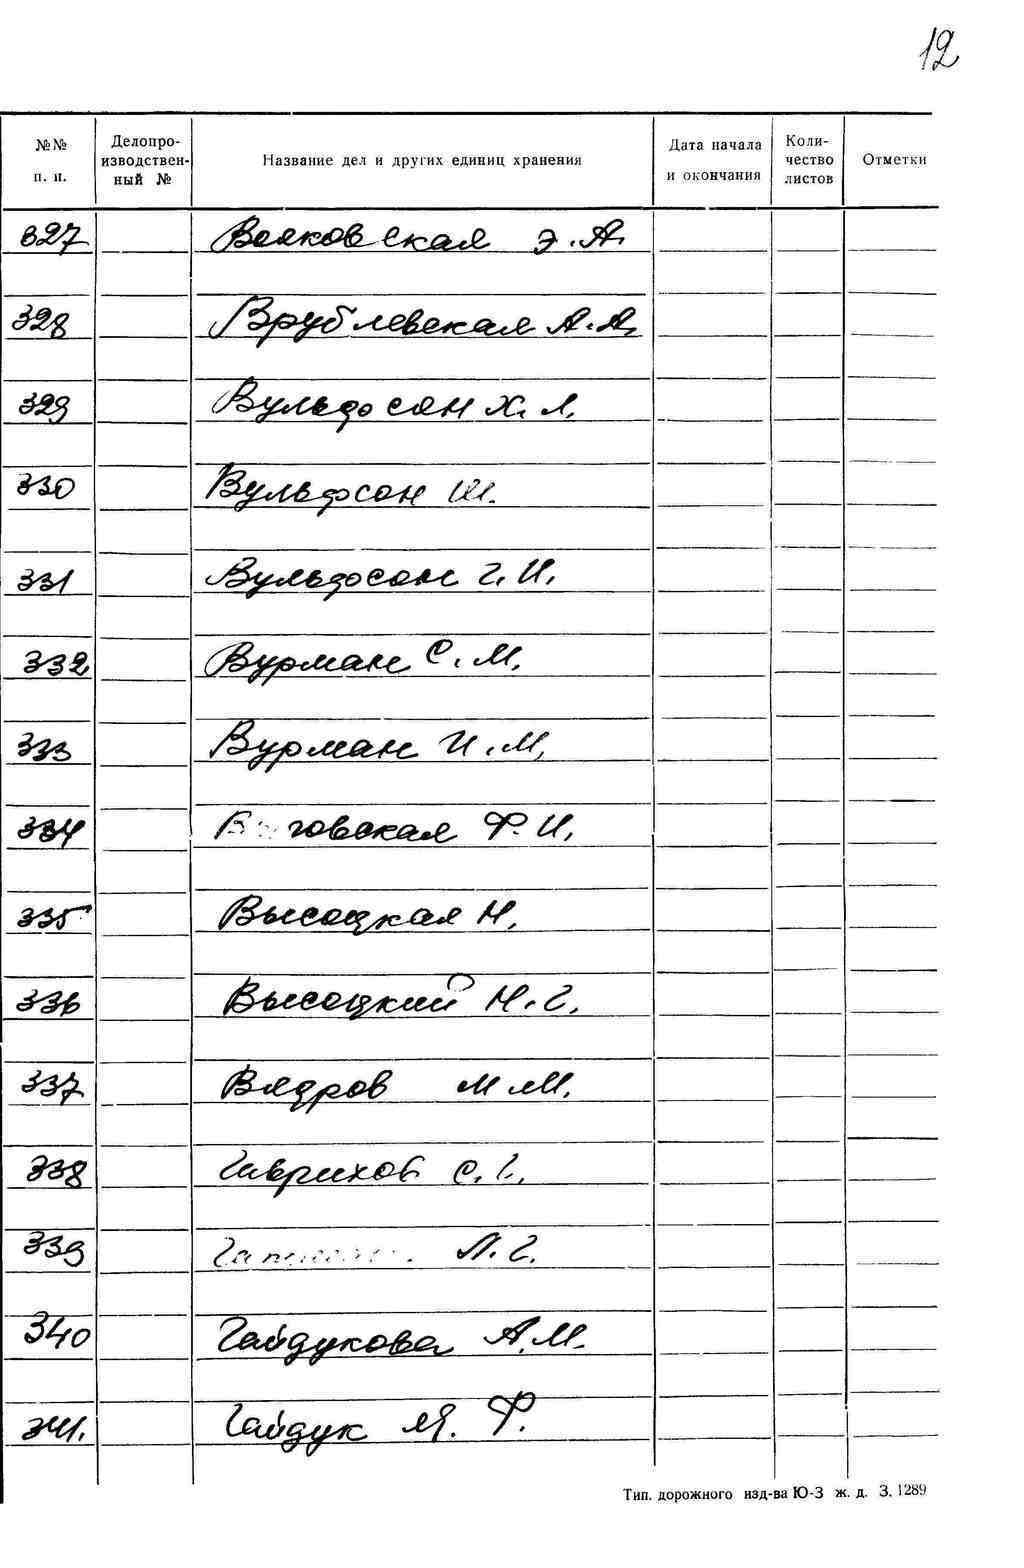 12
№№ п. п.
Делопроизводственный №
Название дел и других единиц хранения
Дата начала и окончания
Количество листов
Отметки
327 Волковская Э. А.
328 Врублевская А. А.
329 Вульфсон Х. Л.
330 Вульфсон Ш.
331 Вульфсон Г. И.
332 Вурман С. М.
333 Вурман И. М.
334 Ф. И.
335 Высоцкая Н.
336 Высоцкий Н. Г.
337 Вядров М. М.
338 Гаврихов С. Г.
339 Л. Г.
340 Гайдукова А. М.
341. Гайдук М. Ф.
Тип. дорожного изд-ва Ю-З ж. д. З. 1289